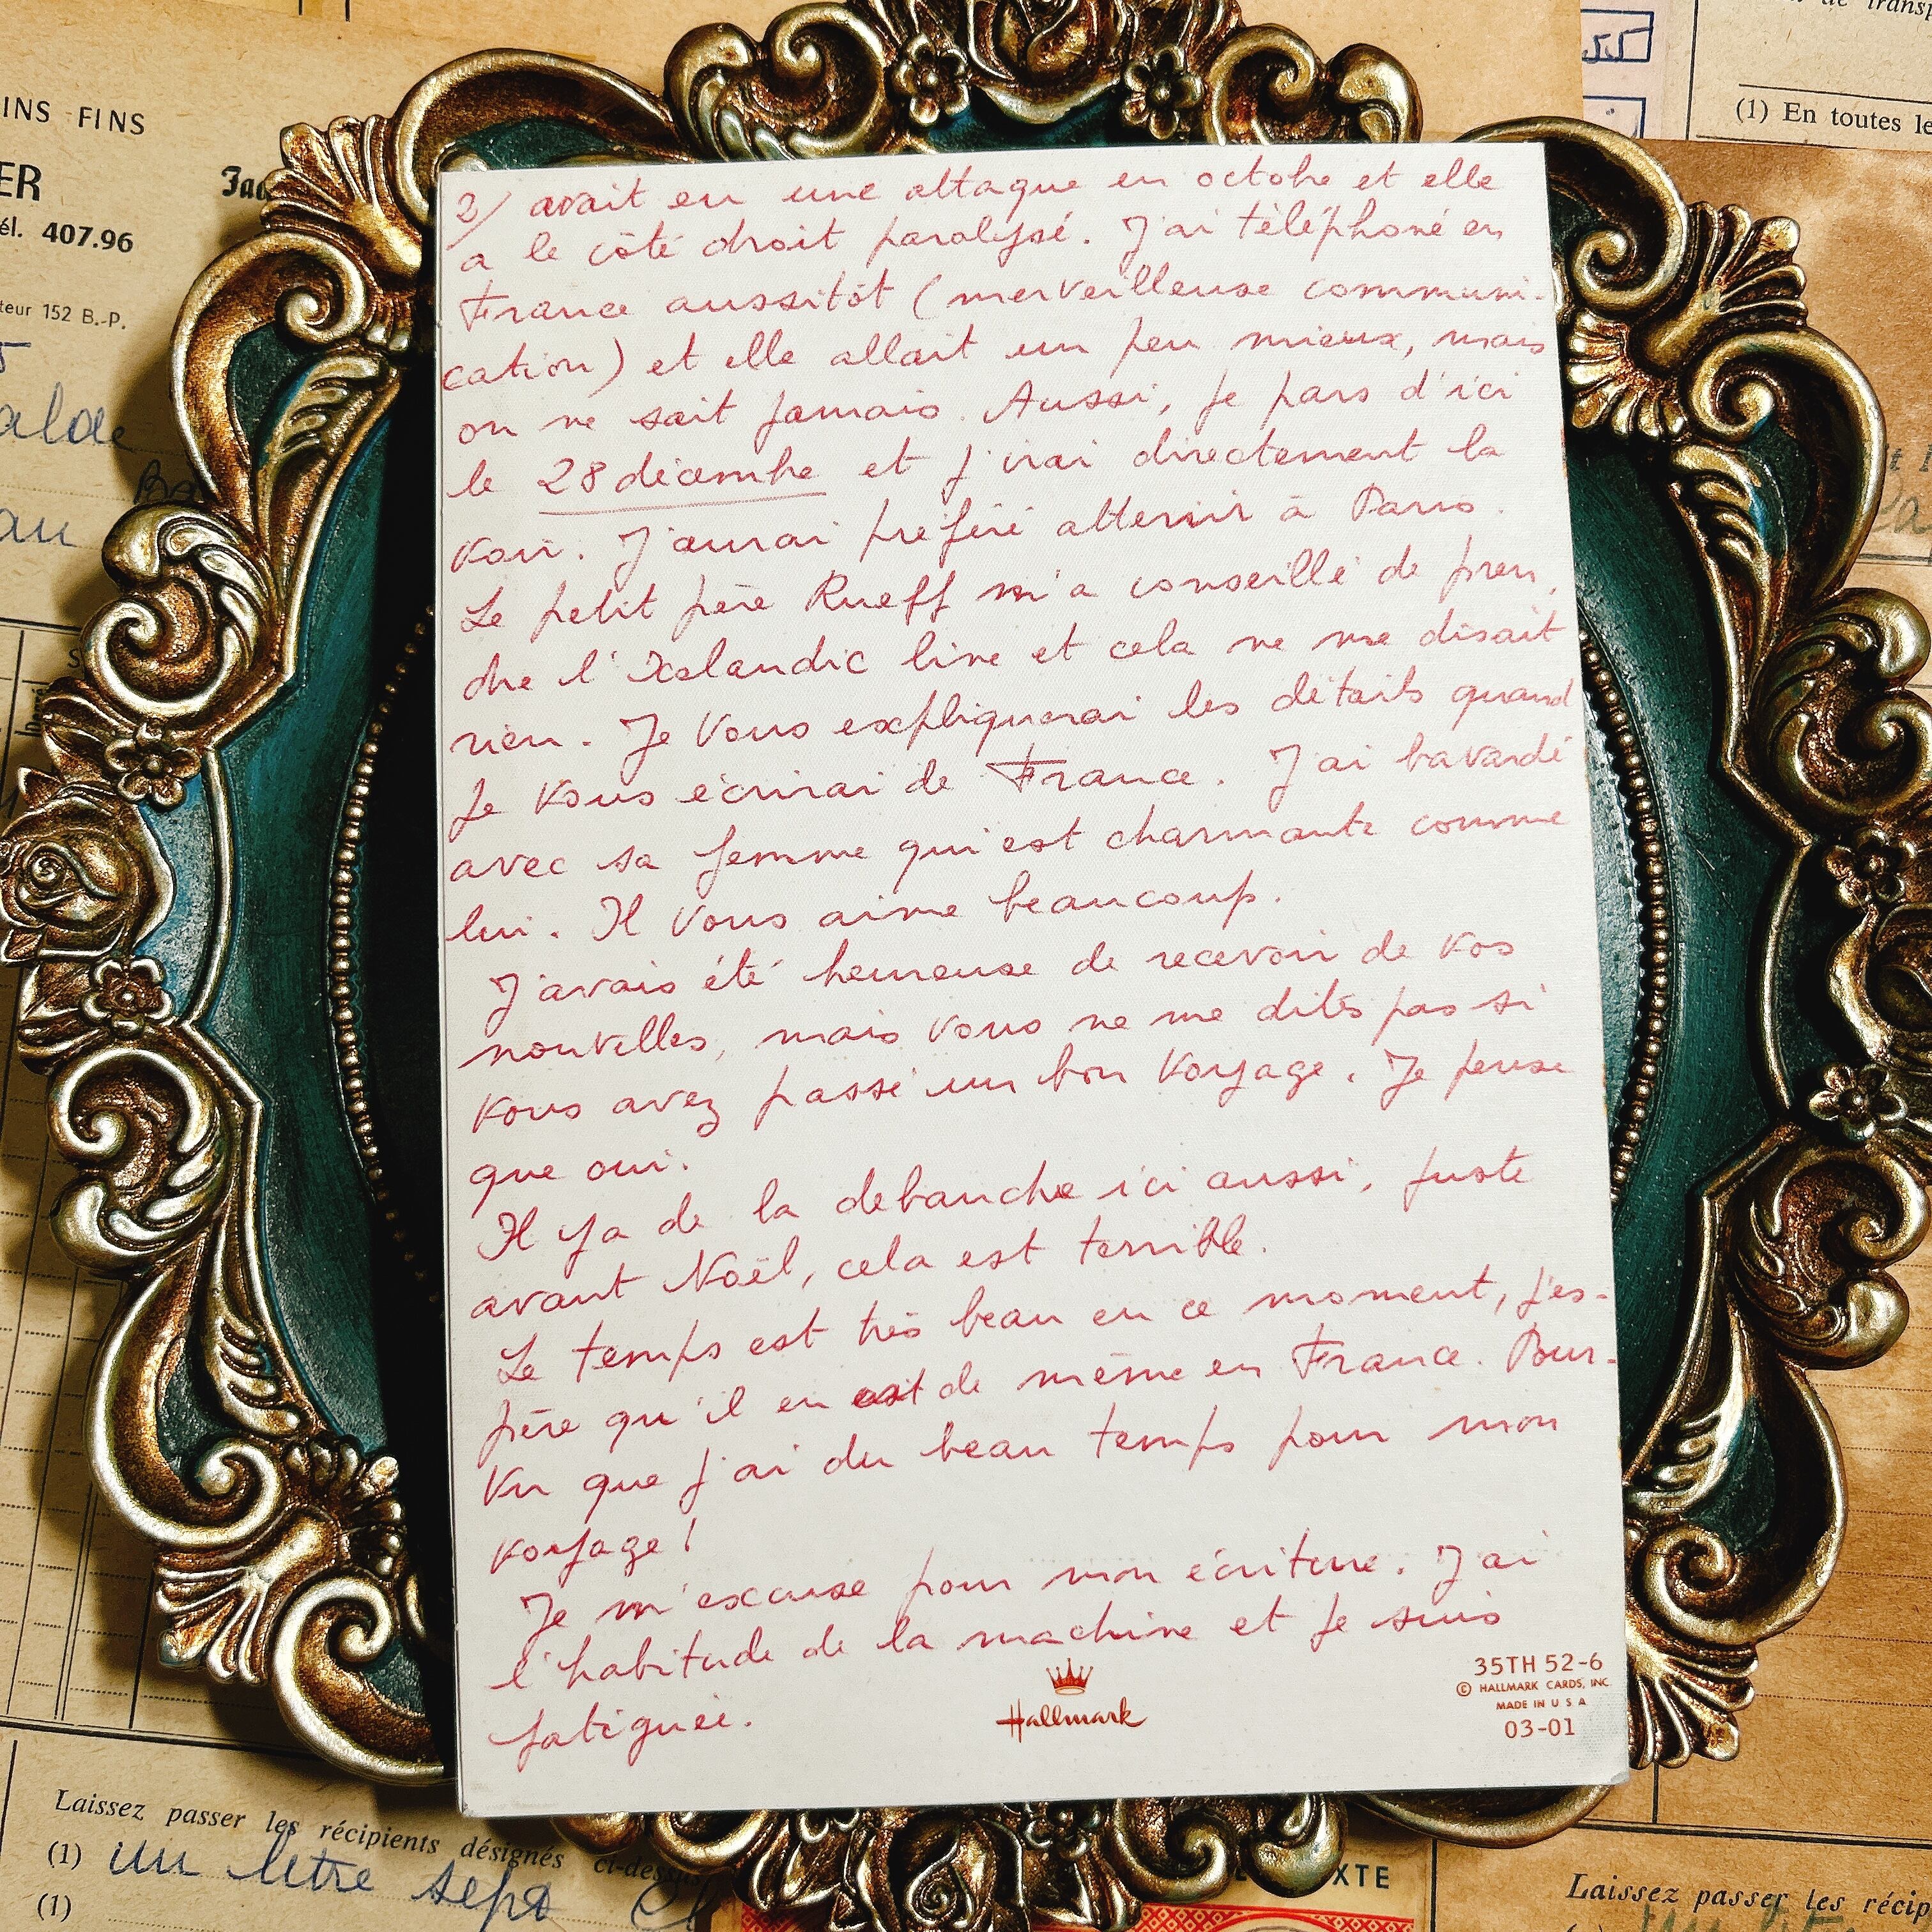 INS FINS
ER
él. 407.96
teur 152 B.-P.
(1) En toutes le
2/ avait eu une attaque en octobre et elle
a le côté droit paralysé. J'ai téléphoné en
France aussitôt (merveilleuse communi-
cation) et elle allait un peu mieux, mais
on ne sait jamais. Aussi, je pars d'ici
le 28 décembre et j'irai directement la
voir. J'aurai préféré atterrir à Paris.
Le petit père Rueff m'a conseillé de pren,
dre l'Icelandic line et cela ne me disait
rien. Je vous expliquerai les détails quand
je vous écrirai de France. J'ai bavardé
avec sa femme qui est charmante comme
lui. Il vous aime beaucoup.
J'avais été heureuse de recevoir de vos
nouvelles, mais vous ne me dites pas si
vous avez passé un bon voyage. Je pense
que oui.
Il y a de la debauche ici aussi, juste
avant Noël, cela est terrible.
Le temps est très beau en ce moment, j'es-
père qu'il en est de même en France. Pour-
vu que j'ai du beau temps pour mon
voyage!
Je m'excuse pour mon écriture. J'ai
l'habitude de la machine et je suis
fatiguée.
Hallmark
35TH 52-6
© HALLMARK CARDS, INC.
MADE IN U S A
03-01
Laissez passer les récipients désignés ci-dessus
(1) un litre sept
(1)
XTE
Laissez passer les récip